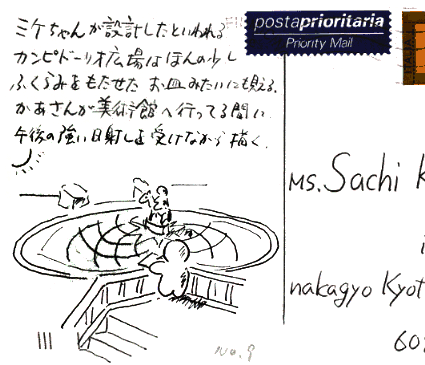 ミケちゃんが設計したといわれる
カンピドーリオ広場はほんの少し
ふくらみをもたせた お皿みたいにも見える.
かあさんが美術館へ行ってる間に
午後の強い日射しを受けながら描く.
postaprioritaria
Priority Mail
Ms. Sachi K
nakagyo Kyot
60
No. 9